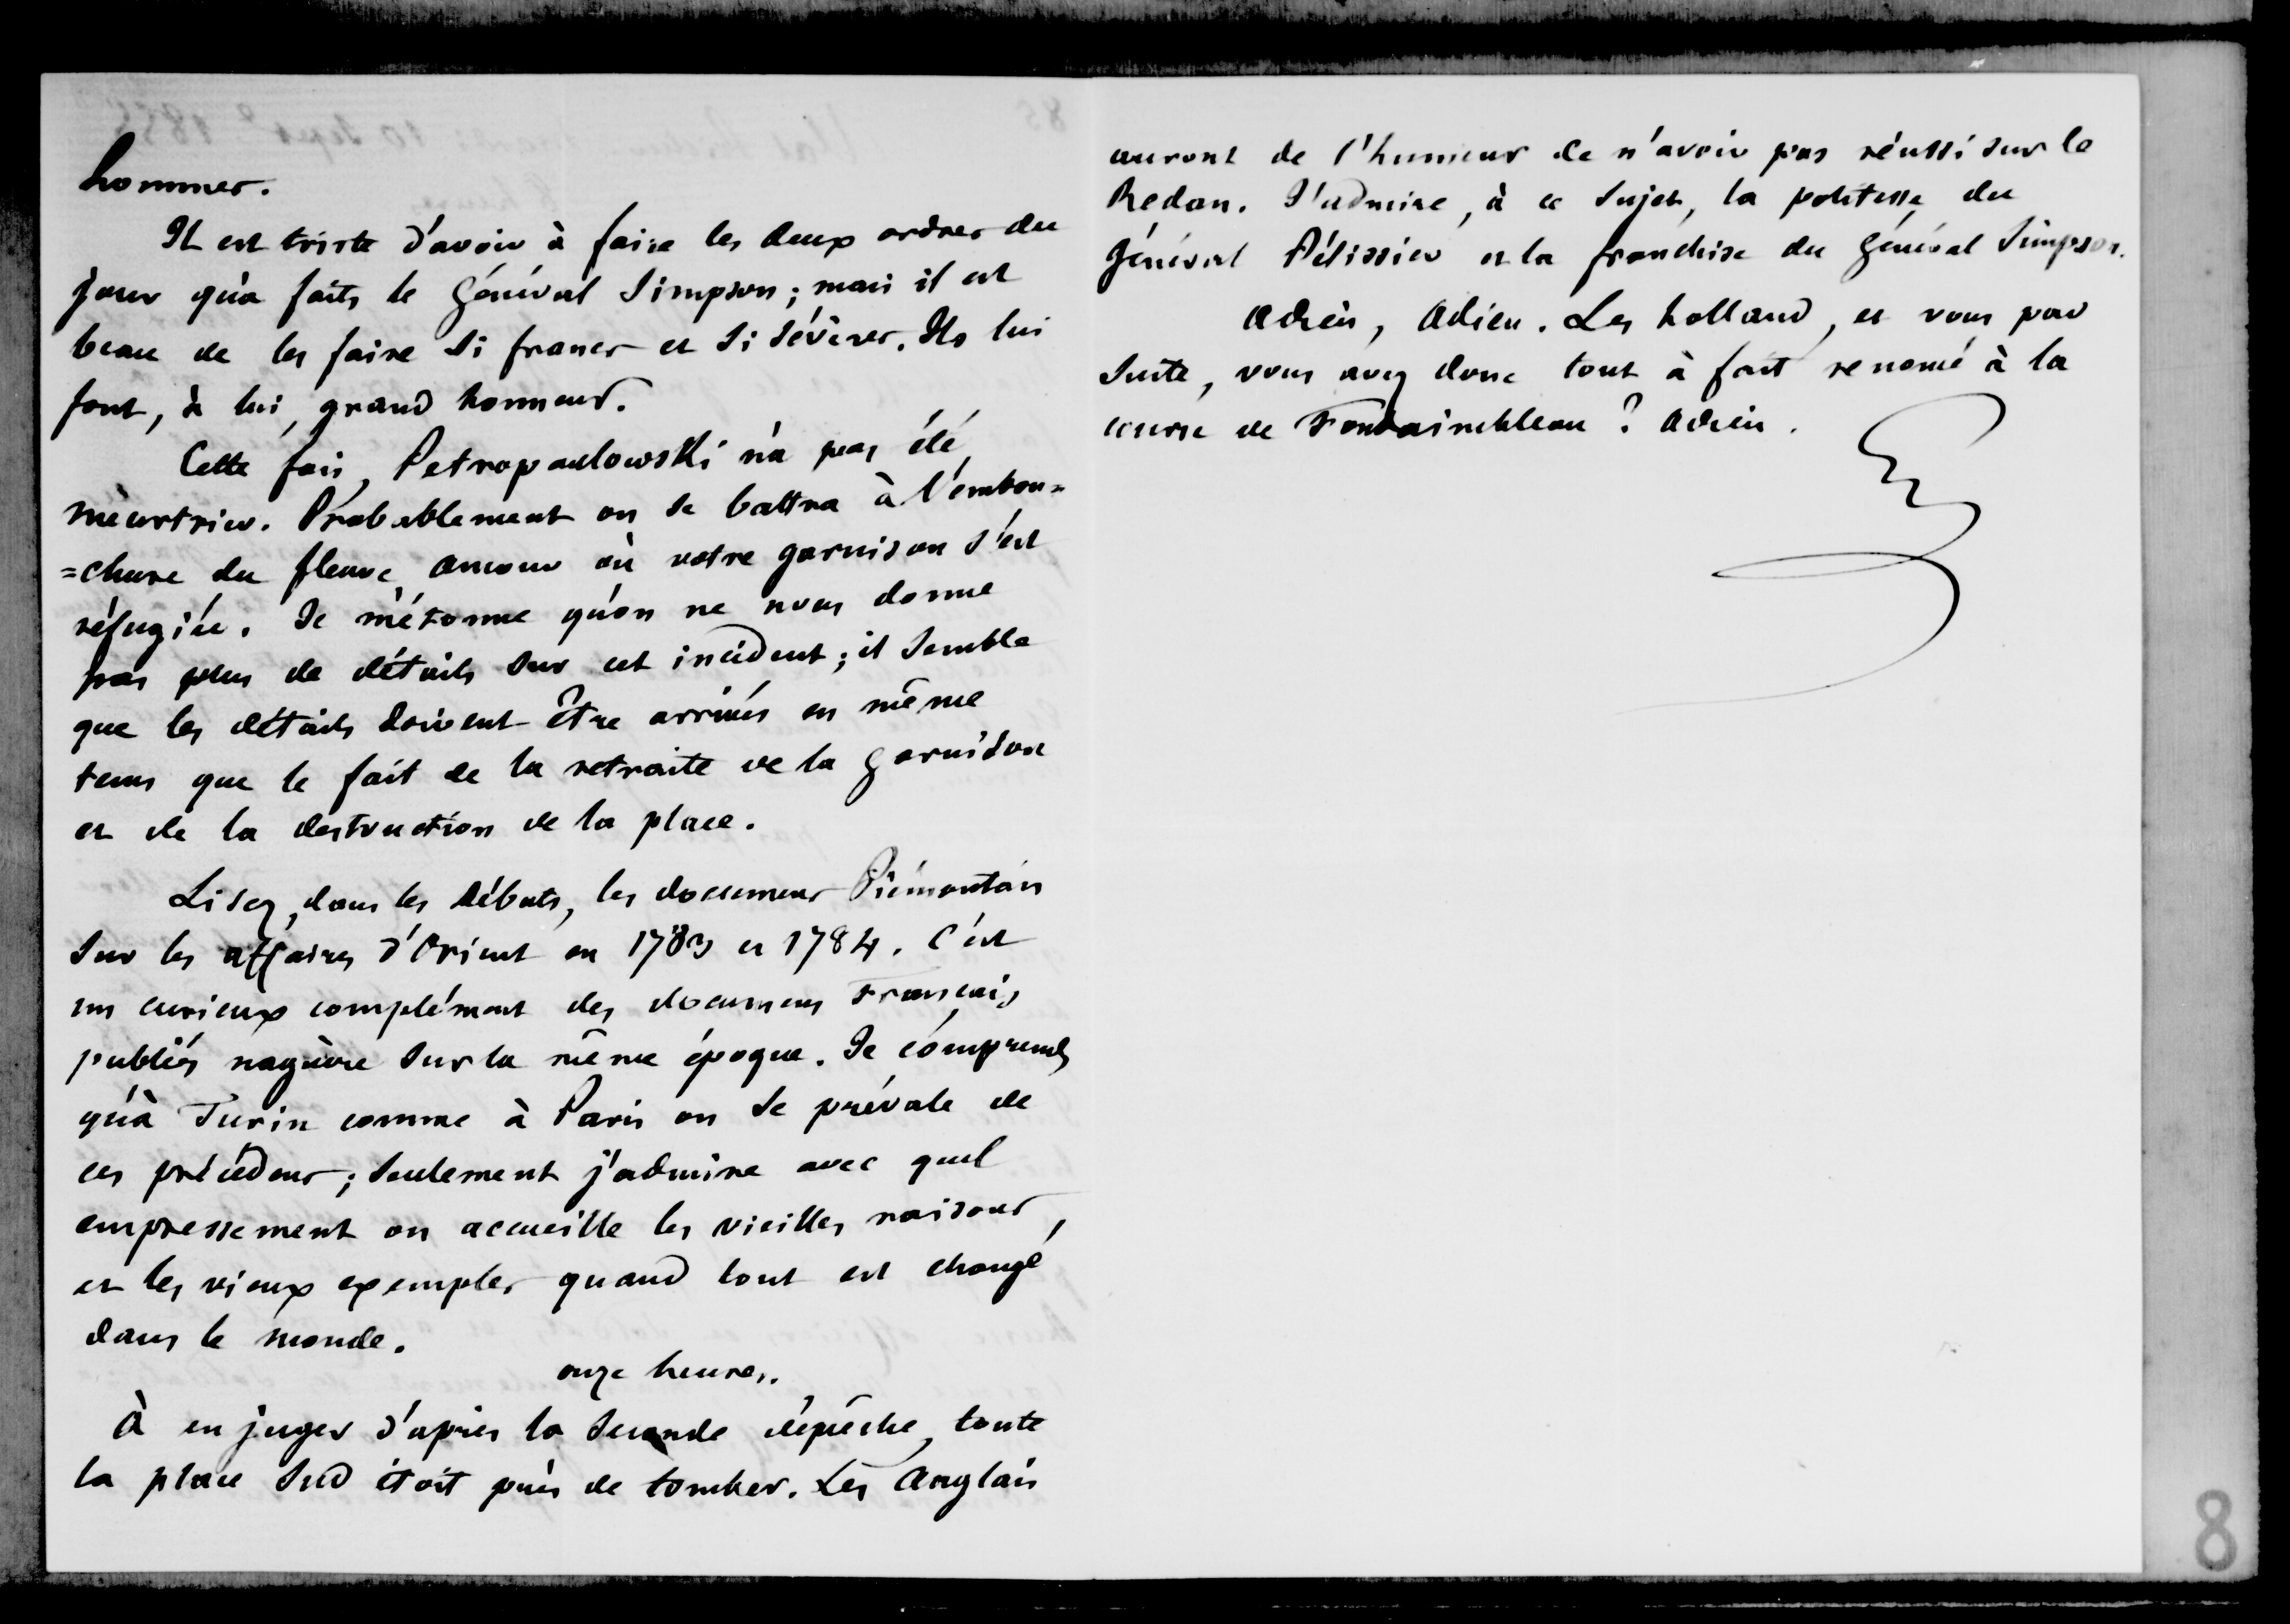 hommes.
Il est triste d'avoir à faire les deux ordres du
jour qu'a faits le Général Simpson ; mais il est
beau de les faire si francs et si sévères. Ils lui
font, à lui, grand honneur.
Cette fois, Petropaulowski n'a pas été
meurtrier. Probablement on se battra à l'embou=
=chure du fleuve amour où votre garnison s'est
réfugiée. Je m'étonne qu'on ne nous donne
pas plus de détails sur cet incident ; il semble
que les détails doivent être arrivés en même
tems que le fait de la retraite de la garnison
et de la destruction de la place.
Lisez, dans les Débats, les documens Piémontais
sur les affaires d'Orient en 1783 et 1784. C'est
un curieux complément des documens Français
publiés naguère sur la même époque. Je comprends
qu'à Turin comme à Paris on se prévale de
ces précédens ; seulement j'admire avec quel
empressement on accueille les vieilles raisons,
et les vieux exemples quand tout est changé
dans le monde.
onze heures.
À en juger d'après la seconde dépêche, toute
la place sud étoit près de tomber. Les Anglais
auront de l'humeur de n'avoir pas réussi sur le
Redan. J'admire, à ce sujet, la politesse du
général Pélissier et la franchise du général Simpson.
Adieu, Adieu. Les Holland, et vous par
suite, vous avez donc tout à fait renoncé à la
course de Fontainebleau ? Adieu.
8